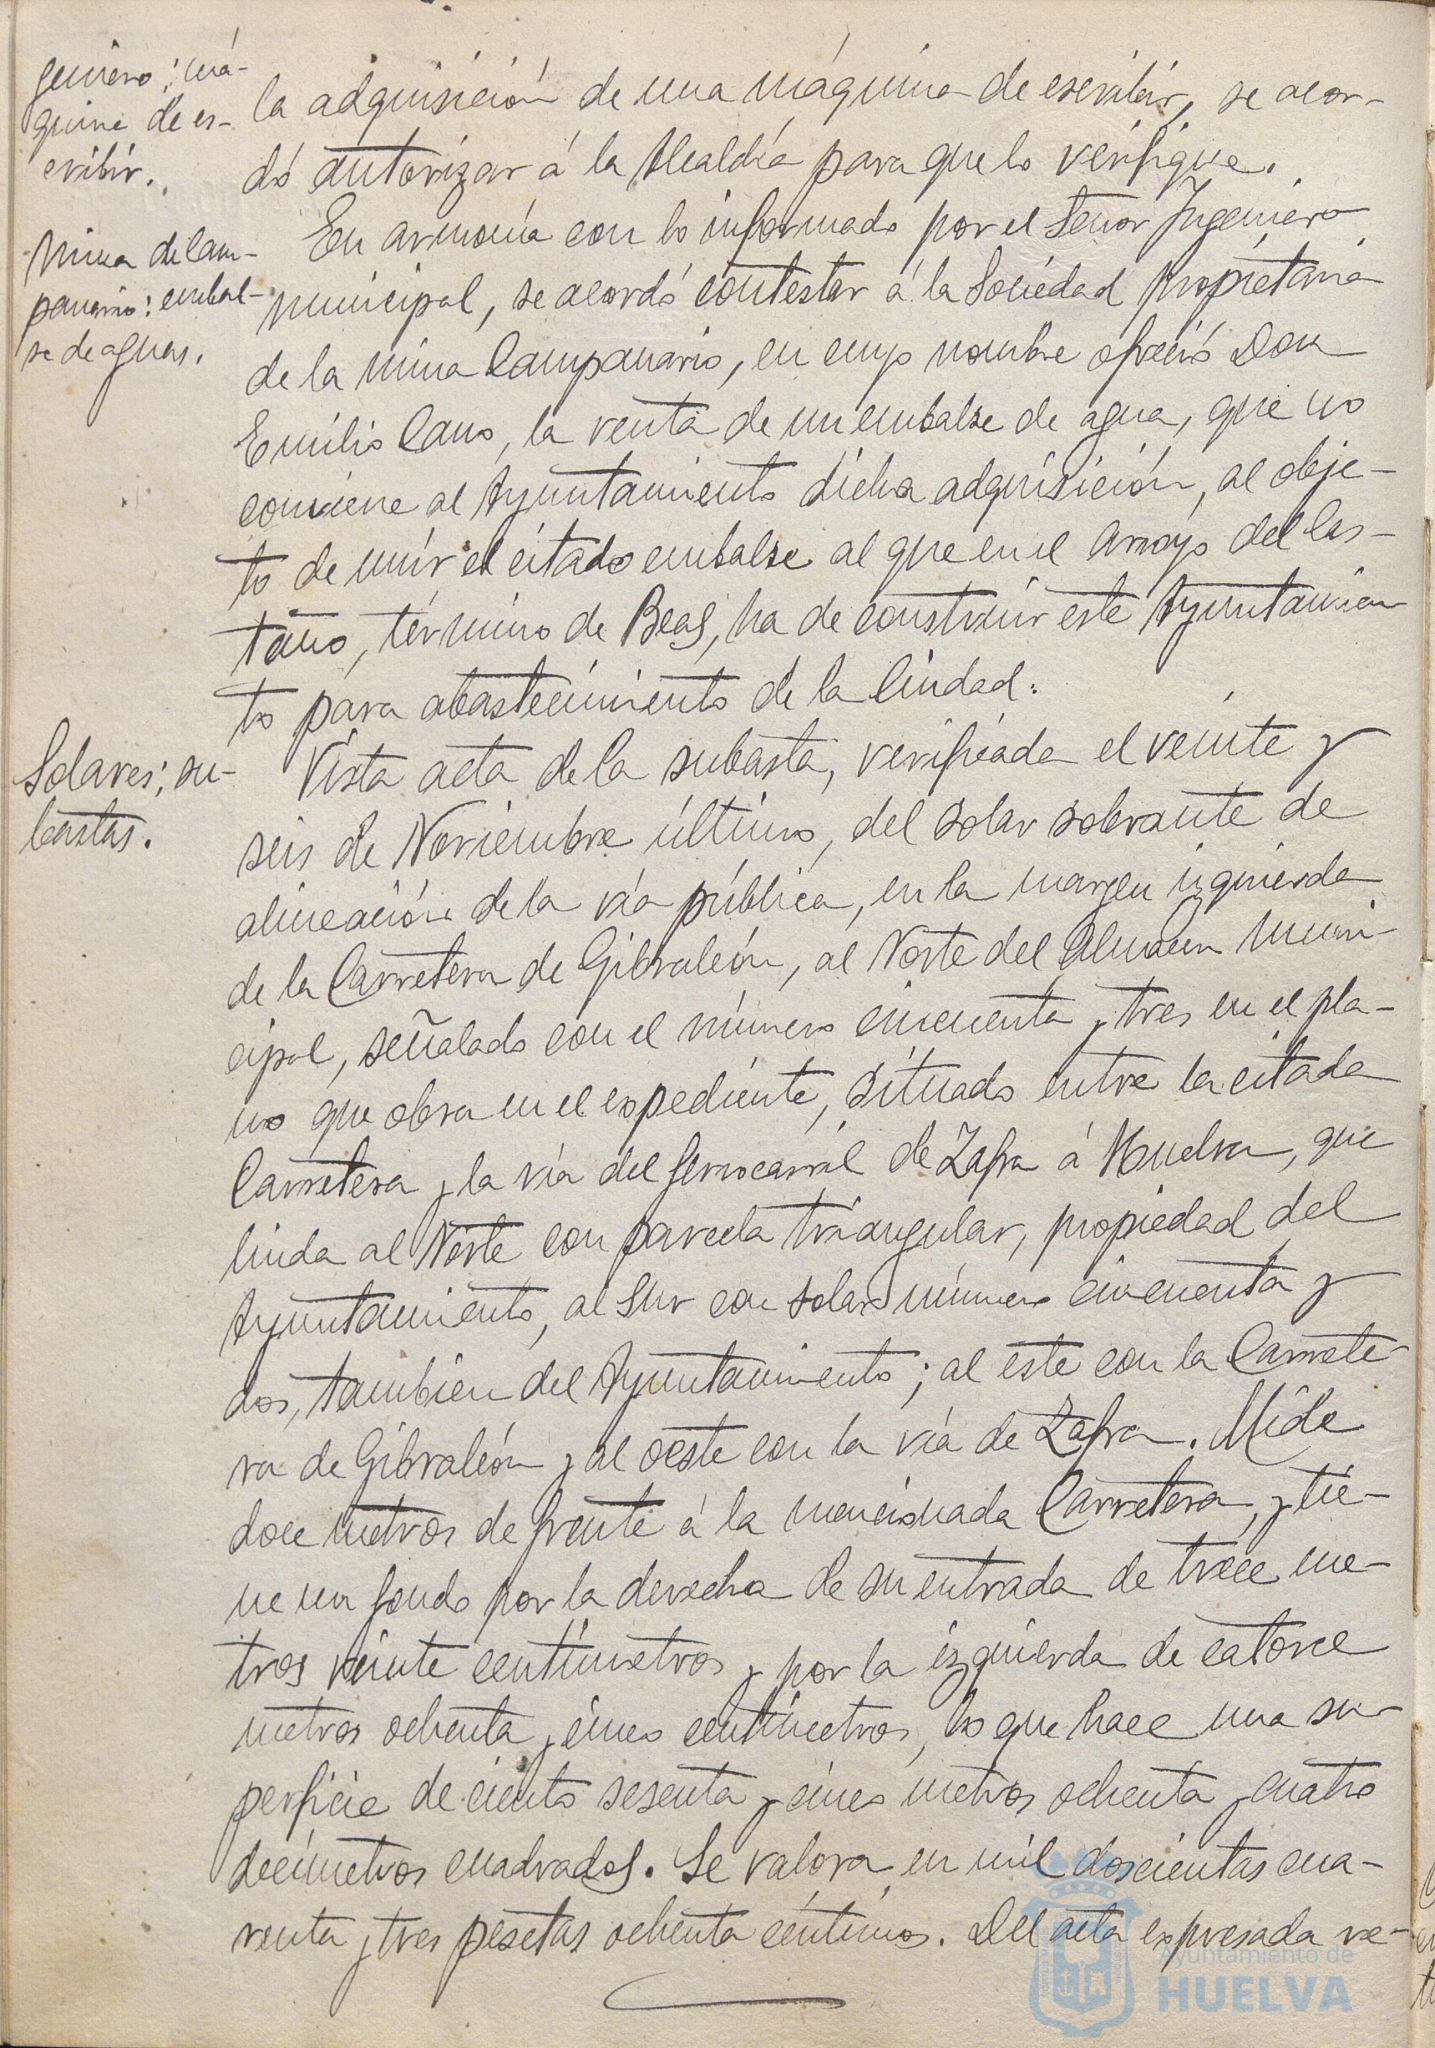 geniero; má-
quina de es-
cribir.
la adquisición de una máquina de escribir, se acor-
dó autorizar á la Alcaldía para que lo verifique.
Mina de Cam-
panario: embal-
se de aguas.
En armonía con lo informado por el Señor Ingeniero
municipal, se acordó contestar á la Sociedad propietaria
de la mina Campanario, en cuyo nombre ofreció Don
Emilio Cano, la venta de un embalse de agua, que no
conviene al Ayuntamiento dicha adquisición, al obje-
to de unir el citado embalse al que en el arroyo del Cas-
taño, término de Beas, ha de construir este Ayuntamien
to para abastecimiento de la Ciudad.
Solares; su-
bastas.
Vista acta de la subasta, verificada el veinte y
seis de Noviembre último, del solar sobrante de
alineación de la vía pública, en la margen izquierda
de la Carretera de Gibraleón, al Norte del Almacen muni-
cipal, señalado con el número cincuenta y tres en el pla-
no que obra en el expediente, situado entre la citada
Carretera y la vía del ferrocarril de Zafra á Huelva, que
linda al Norte con parcela triangular, propiedad del
Ayuntamiento, al Sur con solar número cincuenta y
dos, tambien del Ayuntamiento; al este con la Carrete-
ra de Gibraleón y al oeste con la vía de Zafra. Mide
doce metros de frente á la mencionada Carretera, y tie-
ne un fondo por la derecha de su entrada de trece me-
tros veinte centímetros y por la izquierda de catorce
metros ochenta y cinco centímetros, lo que hace una su-
perficie de ciento sesenta y cinco metros ochenta y cuatro
decímetros cuadrados. Se valora en mil doscientas cua-
renta y tres pesetas ochenta céntimos. Del acta expresada re-
Ayuntamiento de
HUELVA